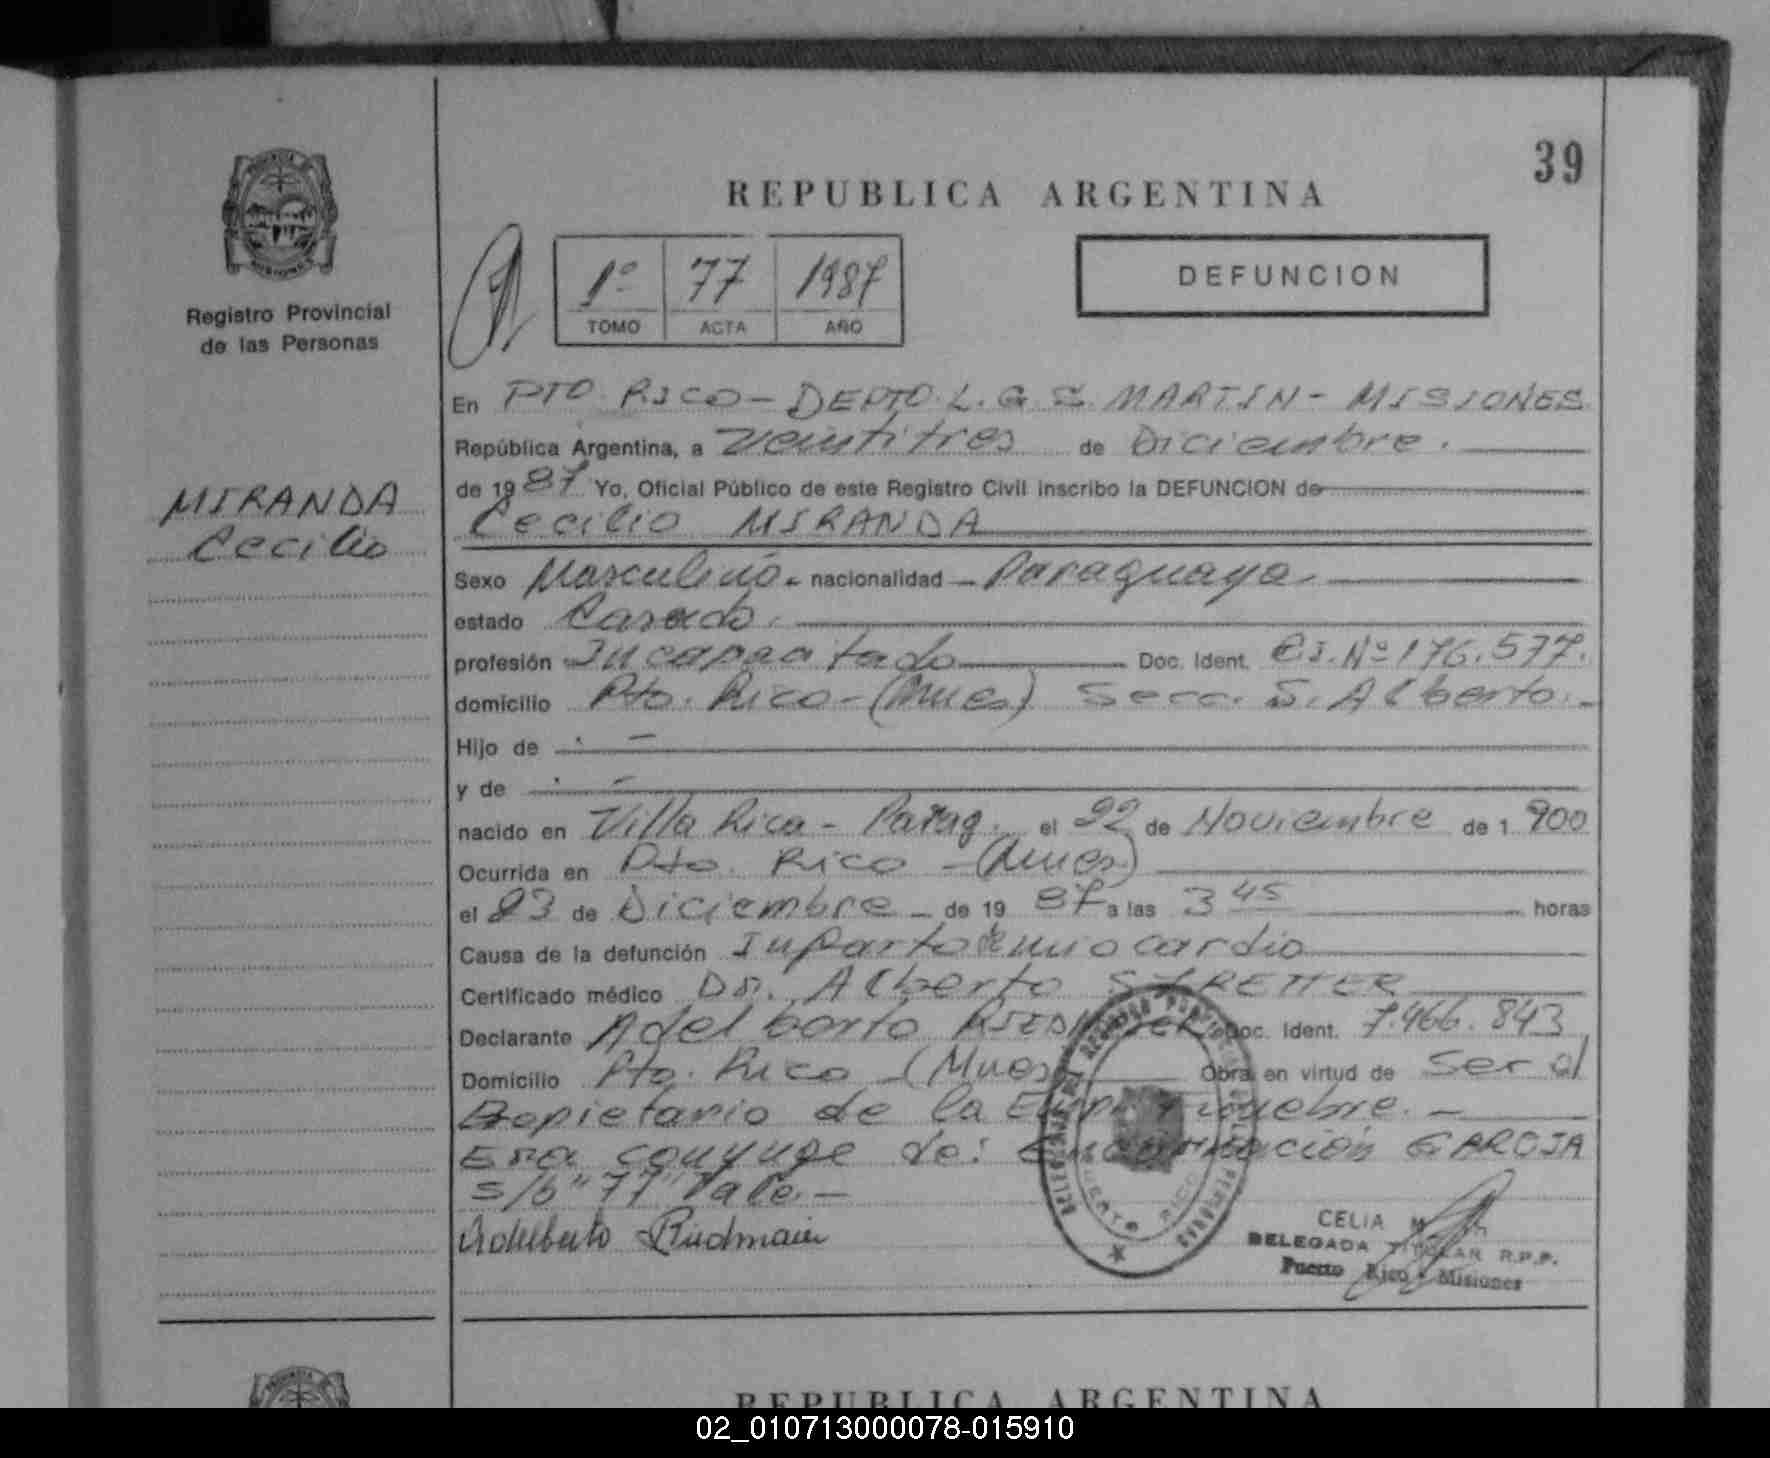 39
REPUBLICA ARGENTINA
Registro Provincial
de las Personas
1º 77 1987
TOMO ACTA AÑO
DEFUNCION
MIRANDA
Cecilio
En PTO. RICO - DEPTO. L.G.S. MARTIN - MISIONES
República Argentina, a veintitres de Diciembre.
de 1987 Yo, Oficial Público de este Registro Civil inscribo la DEFUNCION de
Cecilio MIRANDA
Sexo Masculino. nacionalidad Paraguaya.
estado Casado.
profesión Incapacitado Doc. Ident. C.I. Nº 176.577.
domicilio Pto. Rico - (Mnes) Secc. S. Alberto. -
Hijo de . -
y de . -
nacido en Villa Rica - Parag. el 22 de Noviembre de 1 900
Ocurrida en Pto. Rico - (Mnes)
el 23 de Diciembre - de 19 87 a las 3 45 horas
Causa de la defunción Infarto de miocardio
Certificado médico Dr. Alberto
Declarante Adelberto Doc. Ident. 7.466.843
Domicilio Pto. Rico - (Mnes) Obra en virtud de ser el
Propietario de la Emp. Funebre. -
Era conyuge de: Encarnación GARCIA
s/b "77" Vale. -
Adelberto Riedmaier
CELIA
DELEGADA TITULAR R.P.P.
Puerto Rico - Misiones
REPUBLICA ARGENTINA
02_010713000078-015910